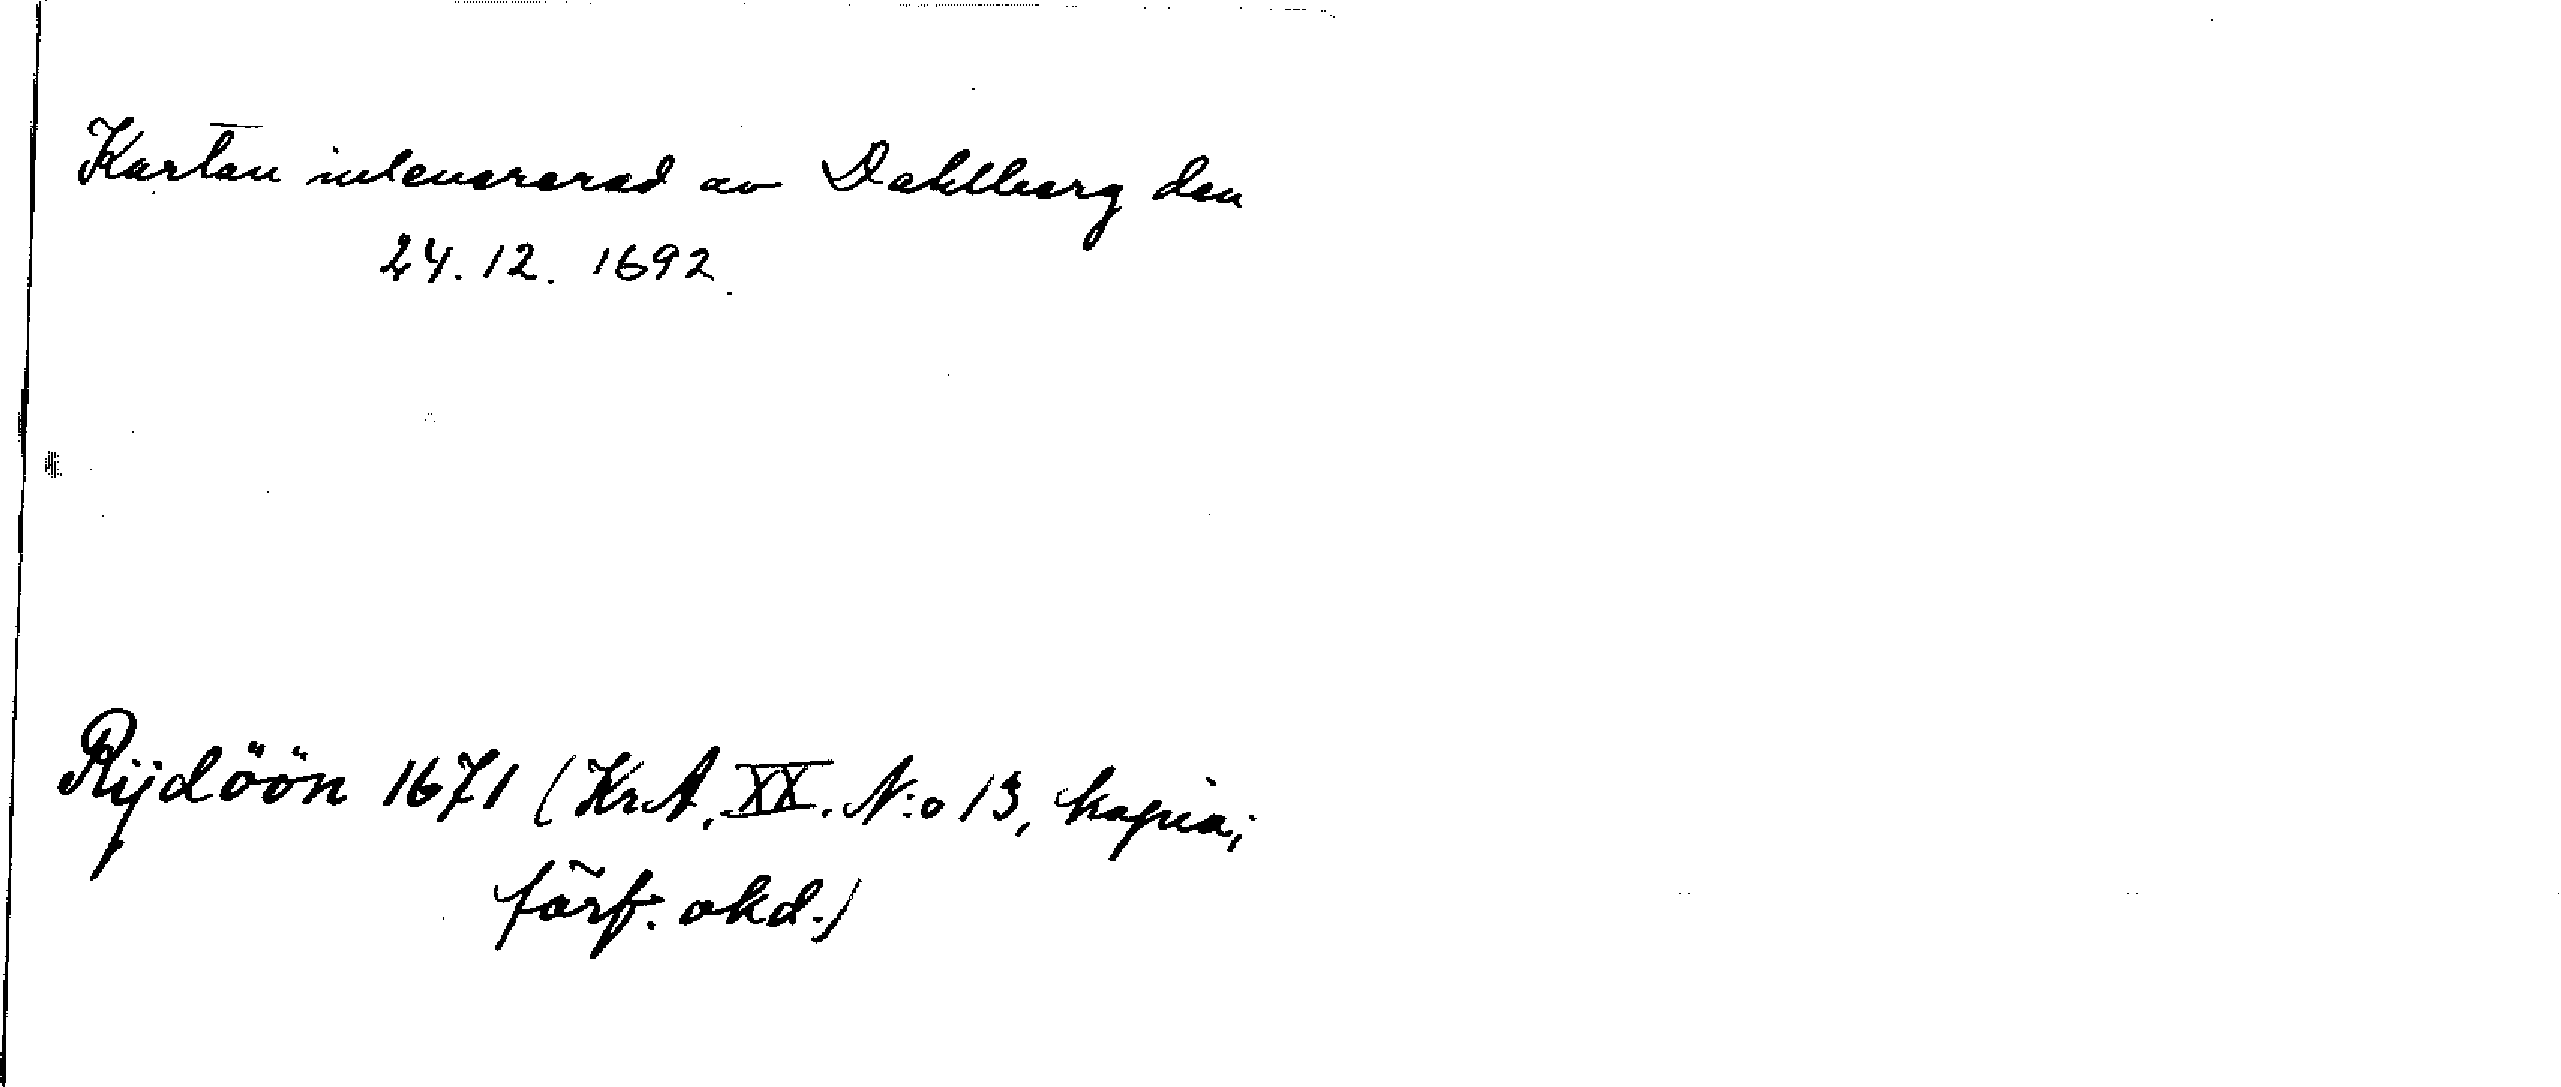 Kartan intenererad av Dahlberg den
24. 12. 1692.
Rijdöön 1671 (KrA, XX. N:o 13, kopia;
förf. okd.)